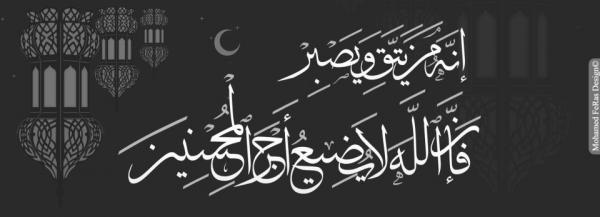 إنه من يتق ويصبر
فإن الله لا يضيع أجر المحسنين
Mohamed FeRas Design©